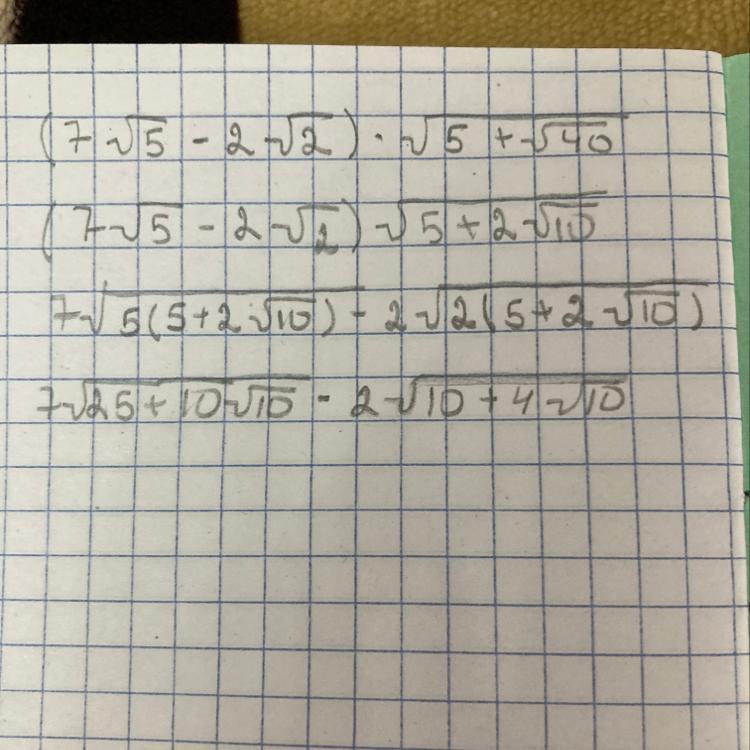 (7√5 - 2√2) · √(5 + √40)
(7√5 - 2√2) √(5 + 2√10)
7√(5(5+2√10)) - 2√(2(5+2√10))
7√(25+10√10) - 2√(10+4√10)